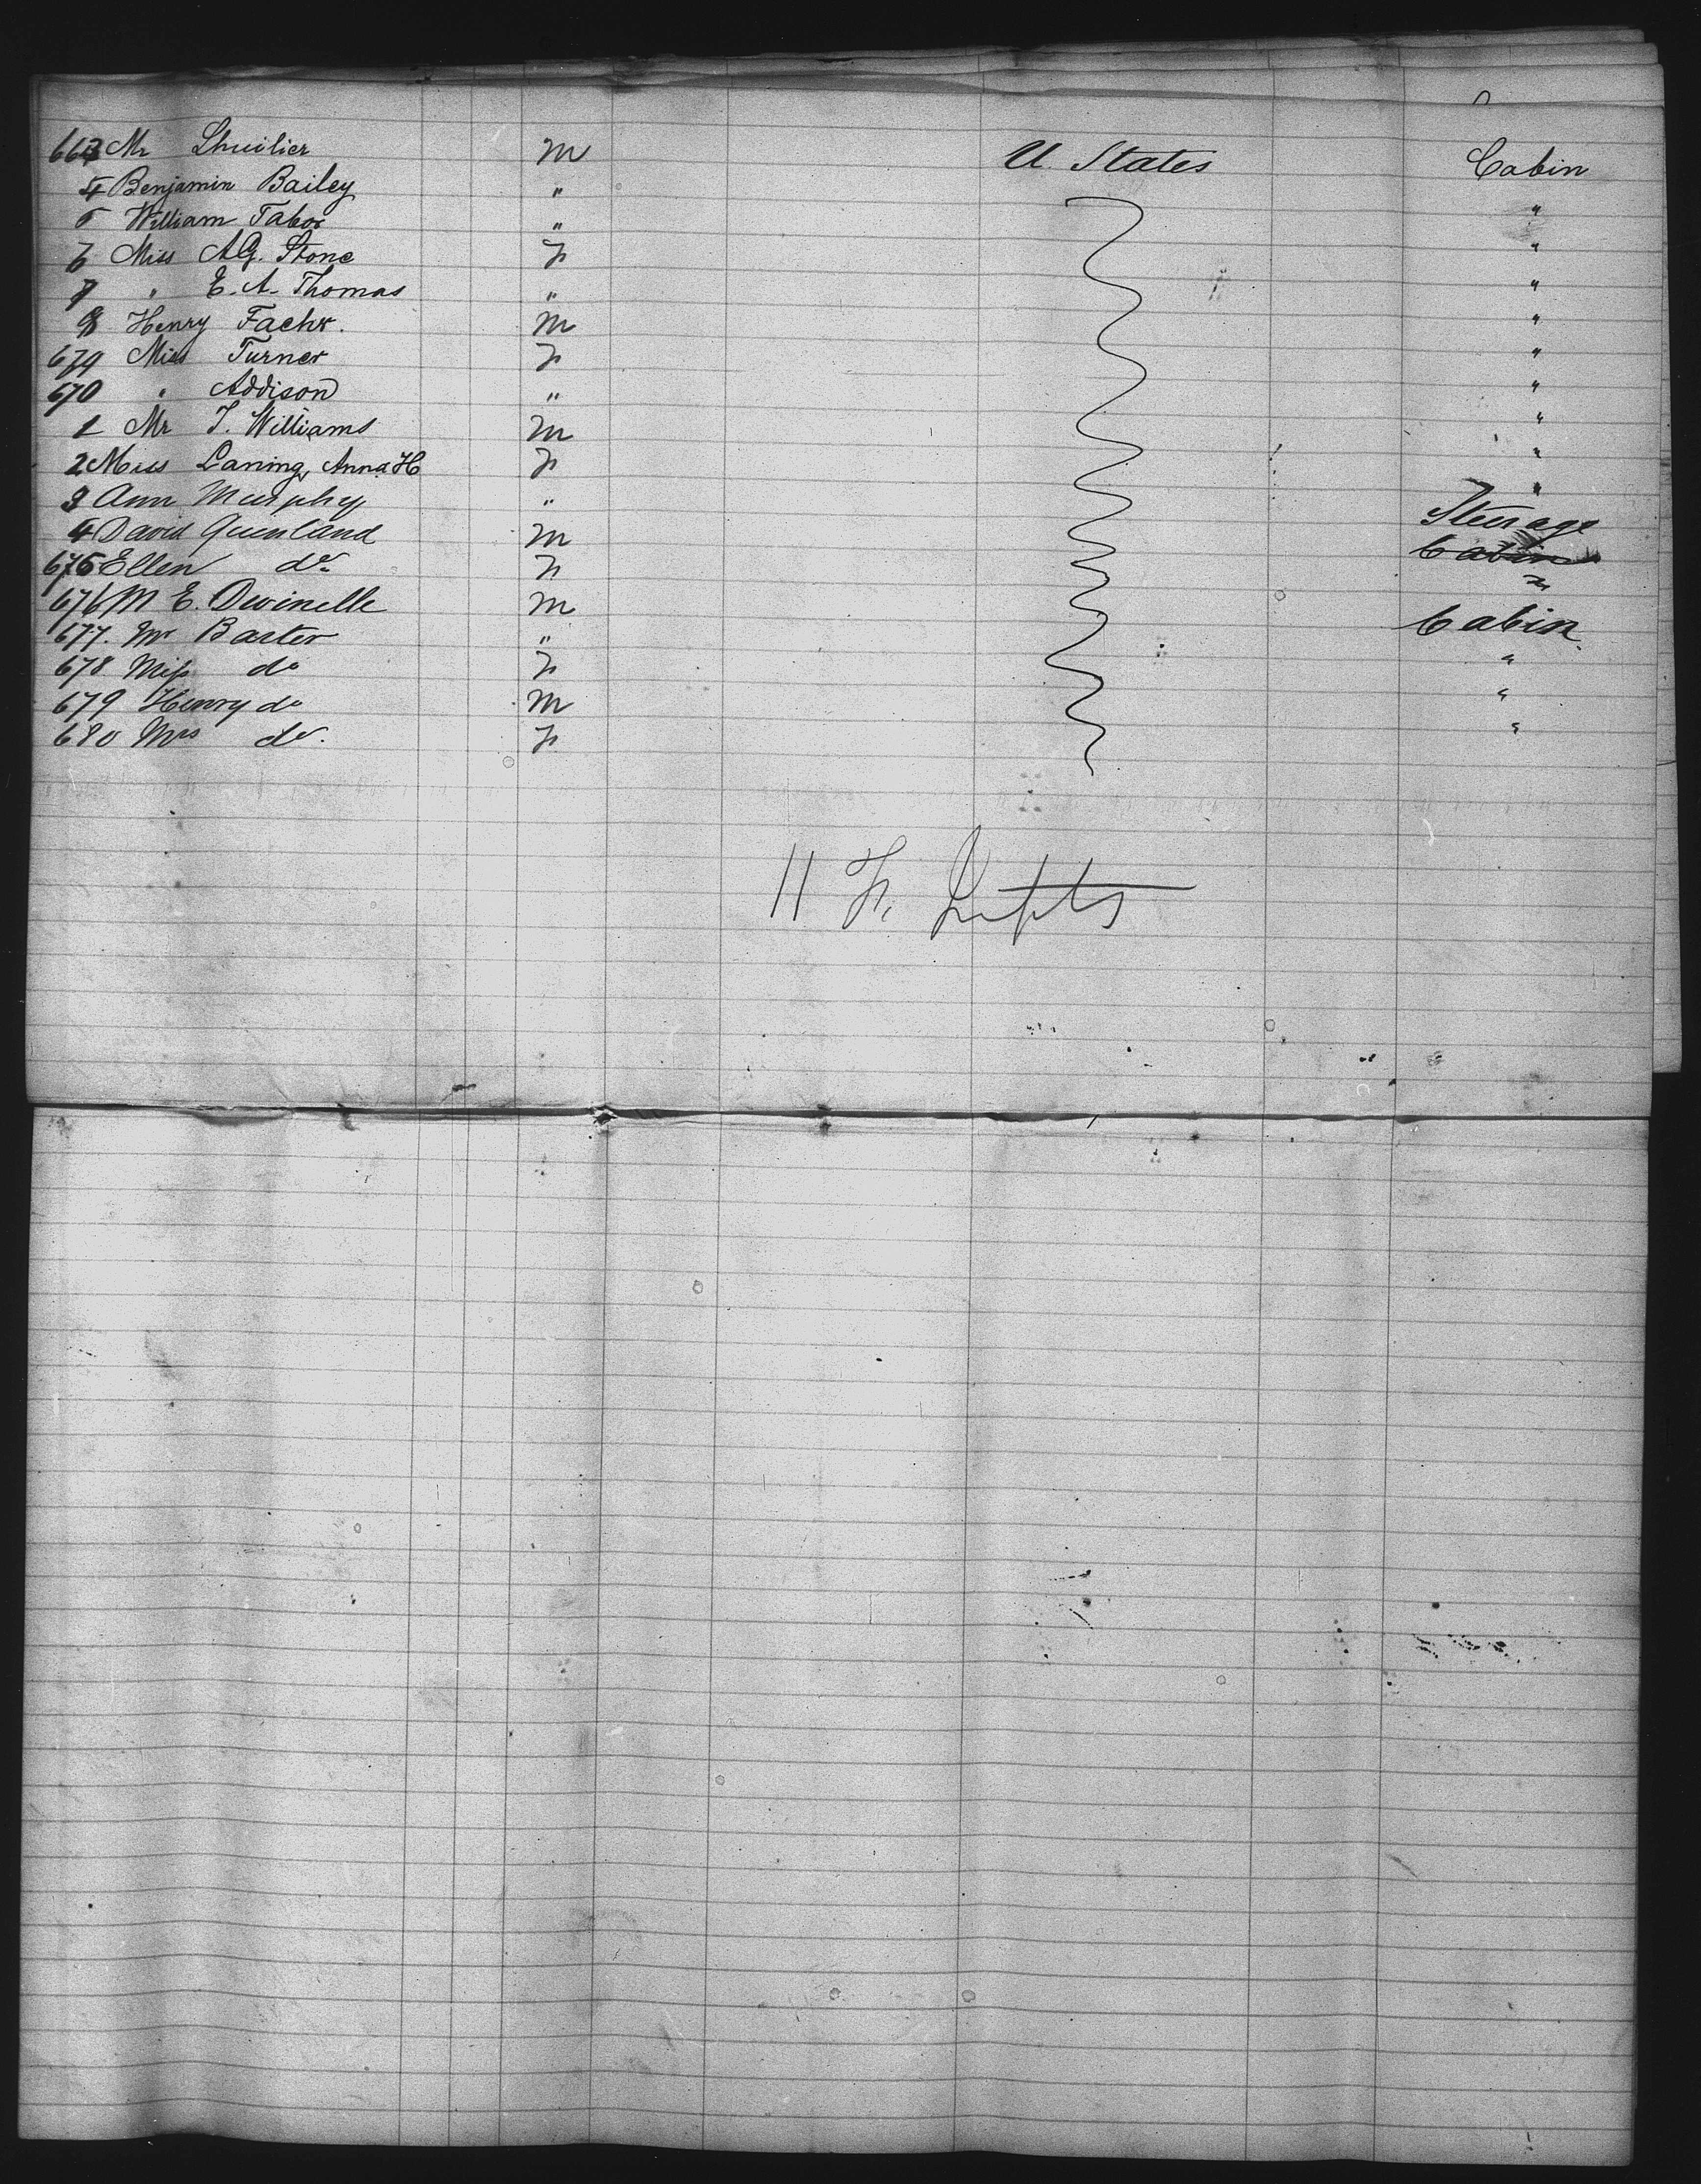 663 Mr Lhuilier M U. States Cabin
4 Benjamin Bailey " "
5 William Tabor " "
6 Miss A.G. Stone F "
7 " E. A. Thomas " "
8 Henry Fachr. M "
679 Miss Turner F "
670 " Addison " "
1 Mr T. Williams M "
2 Miss Laning, Anna H F "
3 Ann Murphy " Steerage
4 David Greenland M Cabin
675 Ellen do F "
676 M E. Dwinelle M Cabin
677. Mr Barter "
678 Miss do F "
679 Henry do M "
680 Mrs do. F "
11 F.